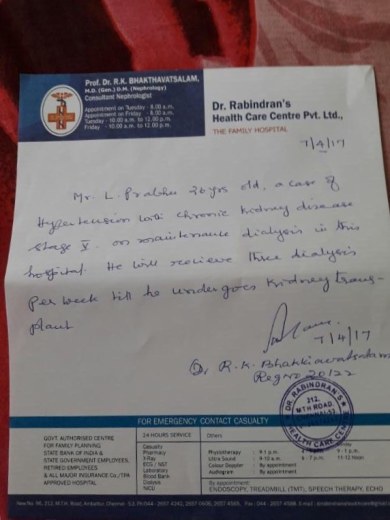 Prof. Dr. R.K. BHAKTHAVATSALAM,
M.D. (Gen.) D.M. (Nephrology)
Consultant Nephrologist
Appointment on Tuesday - 8.00 a.m.
Appointment on Friday - 8.00 a.m.
Tuesday - 10.00 a.m. to 12.00 p.m.
Friday - 10.00 a.m. to 12.00 p.m.
Dr. Rabindran's
Health Care Centre Pvt. Ltd.,
THE FAMILY HOSPITAL
7/4/17
Mr. L. Prabhu 26 yrs old, a case of
Hypertension with chronic kidney disease
stage V. on maintenance dialysis in this
hospital. He will recieve three dialysis
per week till he undergoes kidney trans-
plant
7/4/17
Dr. R.K. Bhakthavatsalam
Regno 20122
DR. RABINDRAN'S
212,
MTH ROAD,
HEALTH CARE CENTRE
FOR EMERGENCY CONTACT CASUALTY
GOVT. AUTHORISED CENTRE
FOR FAMILY PLANNING
STATE BANK OF INDIA &
STATE GOVERNMENT EMPLOYEES,
RETIRED EMPLOYEES
& ALL MAJOR INSURANCE Co./TPA
APPROVED HOSPITAL
24 HOURS SERVICE
Casualty
Pharmacy
X-Ray
ECG /
Laboratory
Blood Bank
Dialysis
Others
Physiotherapy
Ultra Sound
Colour Doppler - By appointment
Audiogram - By appointment
By appointment
ENDOSCOPY, TREADMILL (TMT), SPEECH THERAPY, ECHO